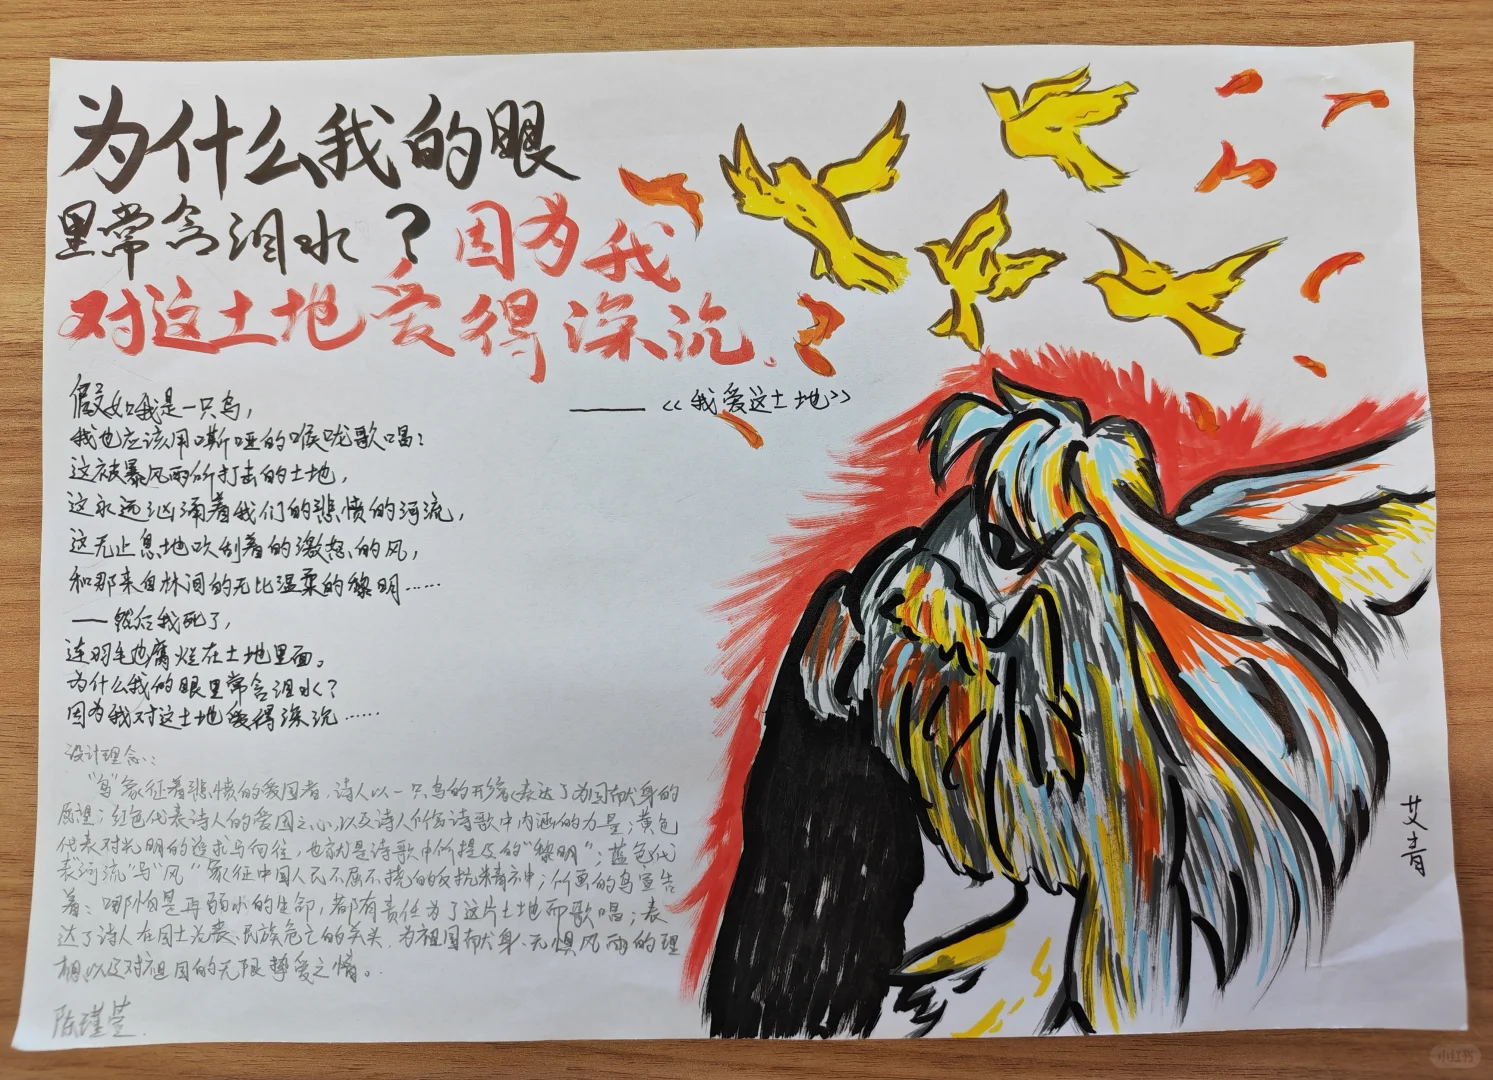 为什么我的眼
里常含泪水？因为我
对这土地爱得深沉.
——《我爱这土地》
假如我是一只鸟，
我也应该用嘶哑的喉咙歌唱：
这被暴风雨所打击的土地，
这永远汹涌着我们的悲愤的河流，
这无止息地吹刮着的激怒的风，
和那来自林间的无比温柔的黎明……
——然后我死了，
连羽毛也腐烂在土地里面。
为什么我的眼里常含泪水？
因为我对这土地爱得深沉……
设计理念：
“鸟”象征着悲愤的爱国者，诗人以一只鸟的形象，表达了为国献身的
愿望；红色代表诗人的爱国之心，以及诗人作诗歌中内涵的力量；黄色
代表对光明的追求与向往，也就是诗歌中所提及的“黎明”；蓝色代
表“河流”与“风”象征中国人民不屈不挠的反抗精神；所画的鸟宣告
着：哪怕是再弱小的生命，都有责任为了这片土地而歌唱；表
达了诗人在国土沦丧、民族危亡的关头，为祖国献身、无惧风雨的理
想，以及对祖国的无限挚爱之情。
陈瑾萱
艾青
小红书